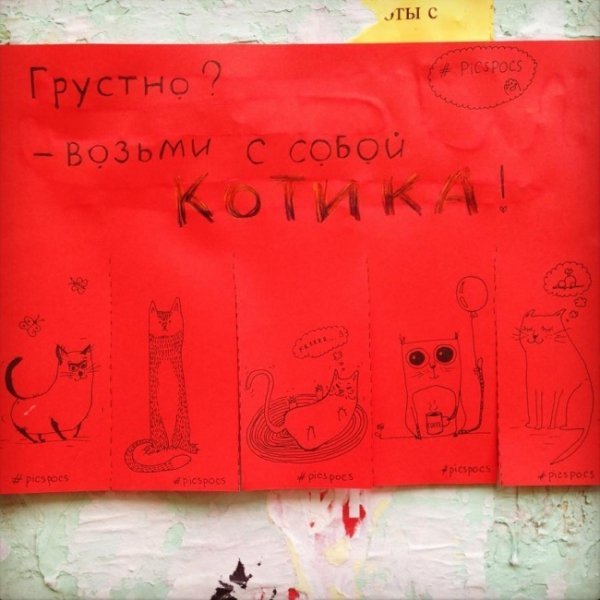 оты с
Грустно?
# picspocs
– возьми с собой
КОТИКА!
# picspocs
# picspocs
# picspocs
# picspocs
# picspocs